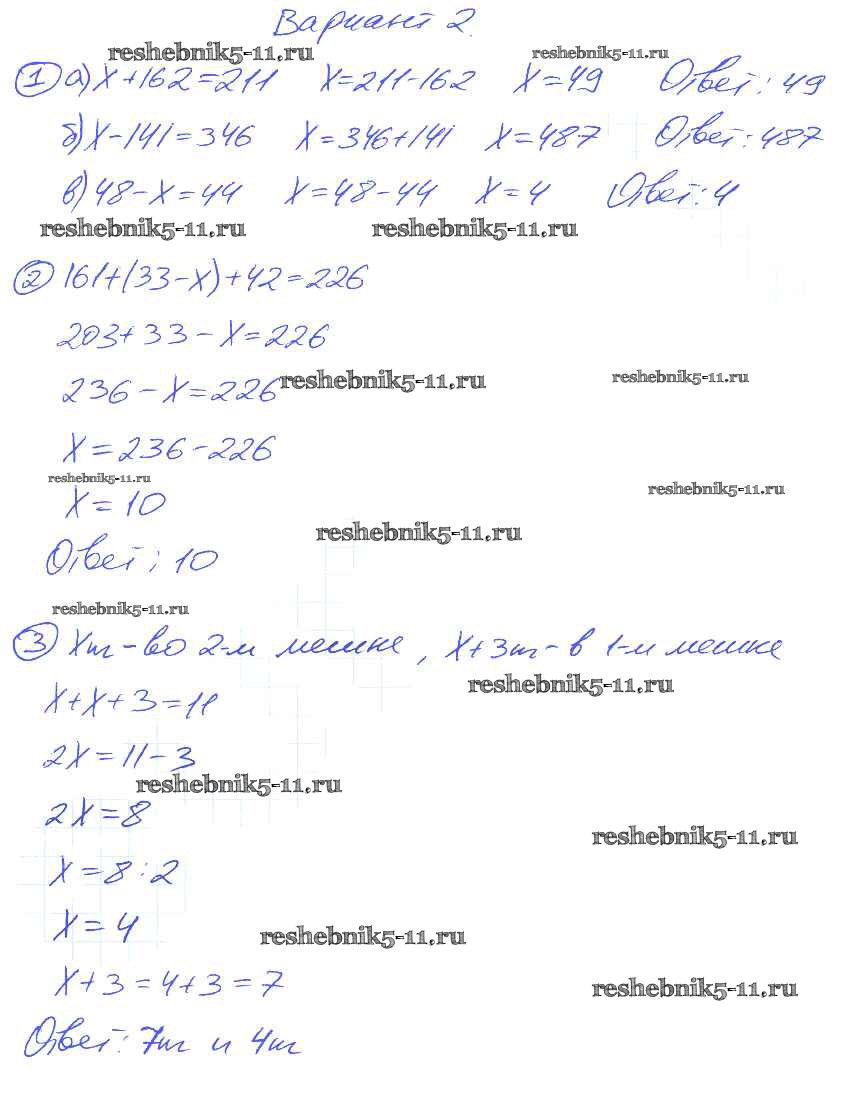 Вариант 2.
reshebnik5-11.ru reshebnik5-11.ru
1 а) x+162=211 x=211-162 x=49 Ответ: 49
б) x-141=346 x=346+141 x=487 Ответ: 487
в) 48-x=44 x=48-44 x=4 Ответ: 4
reshebnik5-11.ru reshebnik5-11.ru
2 161+(33-x)+42=226
203+33-x=226
236-x=226
reshebnik5-11.ru reshebnik5-11.ru
x=236-226
reshebnik5-11.ru
x=10
reshebnik5-11.ru
reshebnik5-11.ru
Ответ: 10
reshebnik5-11.ru
3 xт-во 2-м мешке, x+3т-в 1-м мешке
reshebnik5-11.ru
x+x+3=11
2x=11-3
reshebnik5-11.ru
2x=8
reshebnik5-11.ru
x=8:2
x=4
reshebnik5-11.ru
x+3=4+3=7
reshebnik5-11.ru
Ответ: 7т и 4т